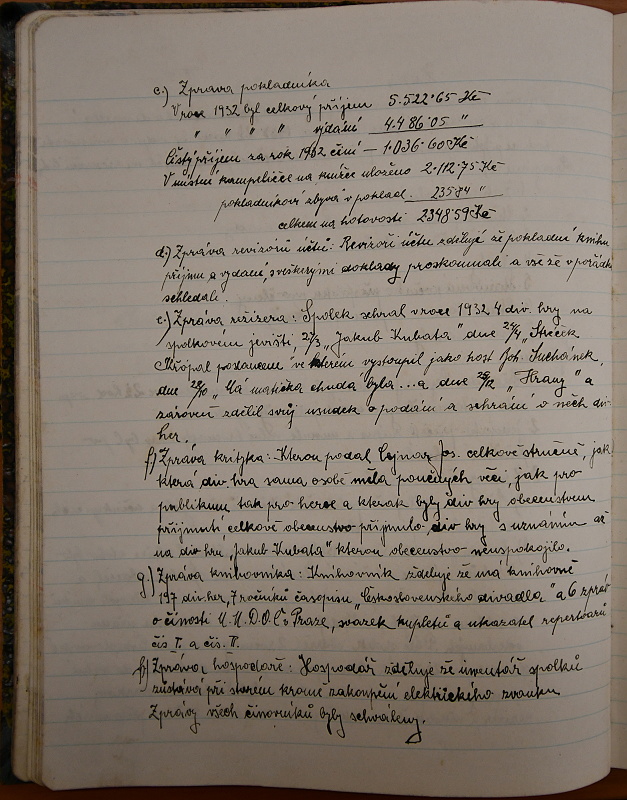 c.) Zpráva pokladníka
V roce 1932 byl celkový příjem 5.522·65 Kč
" " " " vydání 4.486·05 "
Čistý příjem za rok 1932 činí — 1.036·60 Kč
V místní kampeličce na knížce uloženo 2.112·75 Kč
pokladníkovi zbývá v poklad. 235·84 "
celkem na hotovosti 2348·59 Kč
d.) Zpráva revisorů účtů: Revizoři účtu zdělují že pokladní knihu
příjmu a vydání, s veškerými doklady proskoumali a vše v pořádku
schledali.
e.) Zpráva režiséra: Spolek sehrál v roce 1932 4 div. hry na
spolkovém jevišti, 27/3 „Jakub Kubata" dne 24/4 „Strěček
Křópal poslancem ve kterém vystoupil jako host Joh. Suchánek,
dne 28/10 „Má matička chudá byla...a dne 25/12 „Hrany" a
zároveň zdělil svůj usudek o podání a sehrání o něch div.
her.
f.) Zpráva krityka: Kterou podal Lejnar Jos. celkově stručně, jak
která div. hra sama osobě měla poučných věcí, jak pro
publikum tak pro herce a kterak byly div. hry obecenstvem
příjmuti, celkově obecenstvo příjmulo div hry s uznáním až
na div hru „Jakub Kubata" kterou obecenstvo neuspokojilo.
g.) Zpráva knihovníka: Knihovník zděluje že má knihovně
197 div. her, 7 ročníků časopisu „Československého divadla" a 6 zpráv
o činosti Ú.M.D.O.Č v Praze, svazek kupletů a ukazatel repertoárů
čís I. a čís. II.
h) Zpráva hospodáře: Hospodář zděluje že inventář spolků
zůstává při starém kromě zakoupění elektrického zvonku
Zprávy všech činovníků byly schváleny.